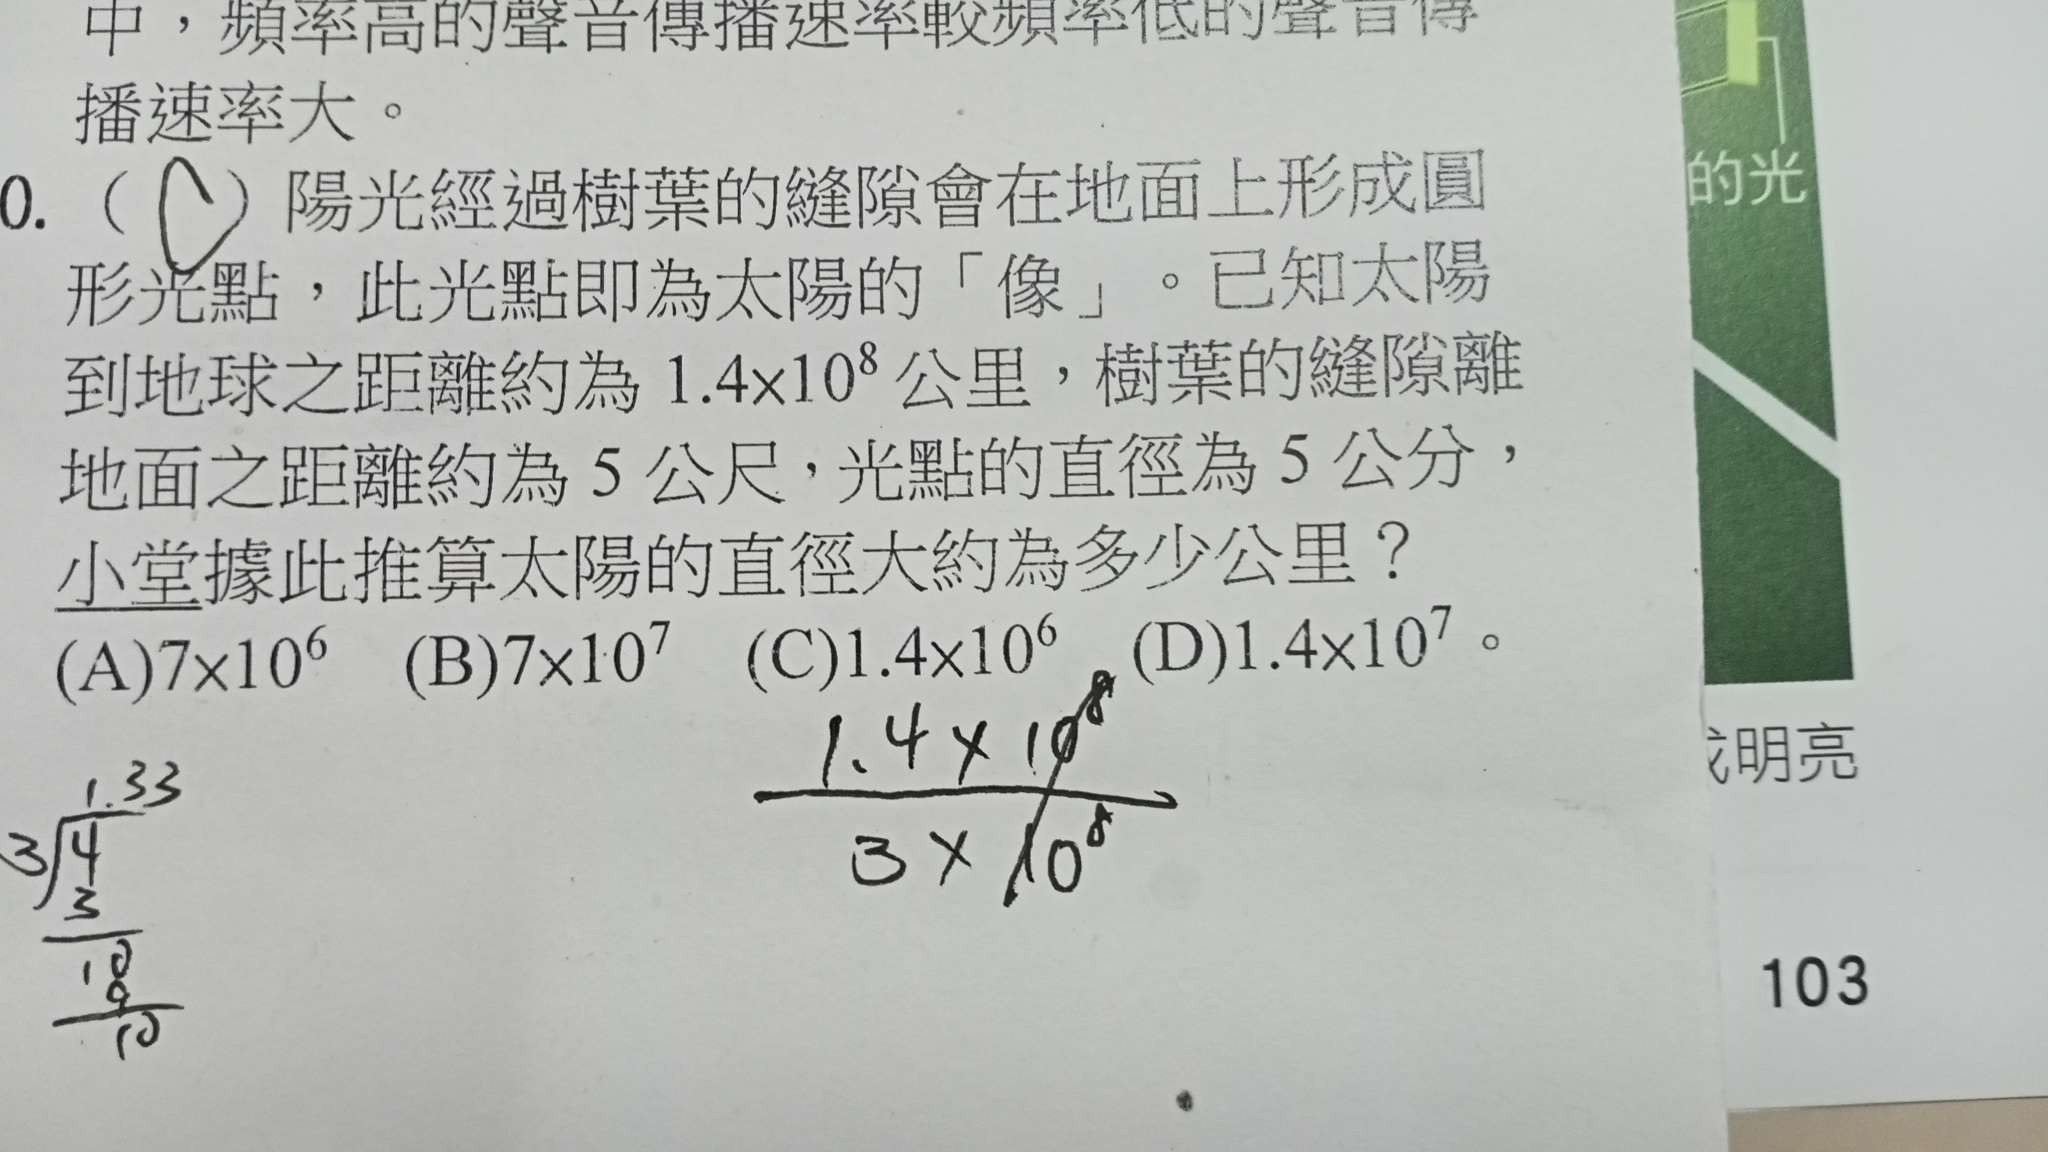 中，頻率高的聲音傳播速率較頻率低的聲音傳
播速率大。
0. （C）陽光經過樹葉的縫隙會在地面上形成圓
形光點，此光點即為太陽的「像」。已知太陽
到地球之距離約為 1.4×10⁸ 公里，樹葉的縫隙離
地面之距離約為 5 公尺，光點的直徑為 5 公分，
小堂據此推算太陽的直徑大約為多少公里？
(A)7×10⁶ (B)7×10⁷ (C)1.4×10⁶ (D)1.4×10⁷。
1.4×10⁸
3×10⁸
1.33
3 4
3
10
9
10
的光
明亮
103